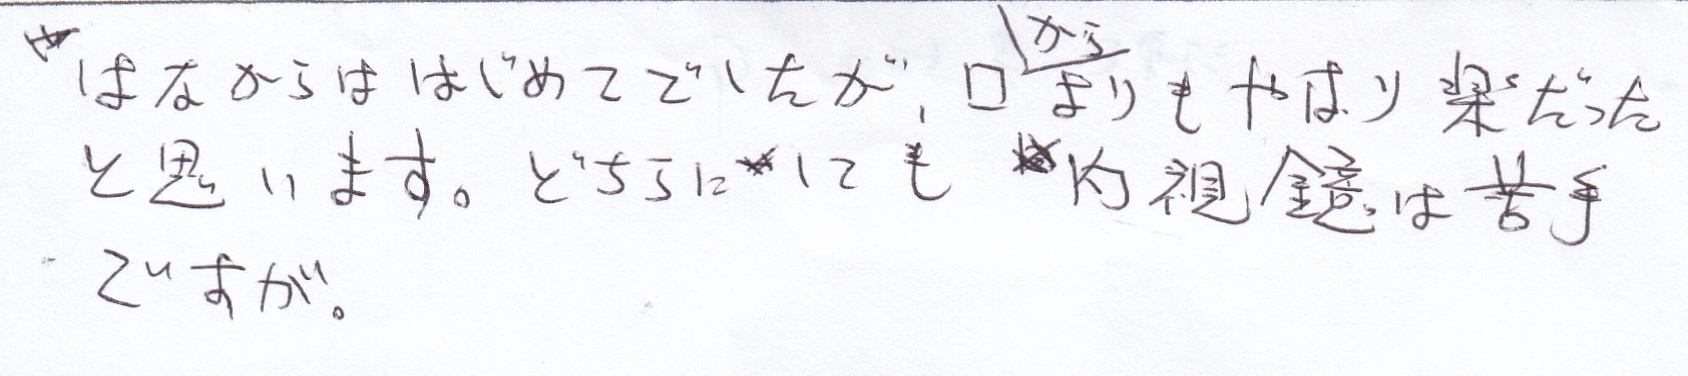 はなからははじめてでしたが、口からよりもやはり楽だった
と思います。どちらにしても内視鏡は苦手
ですが。